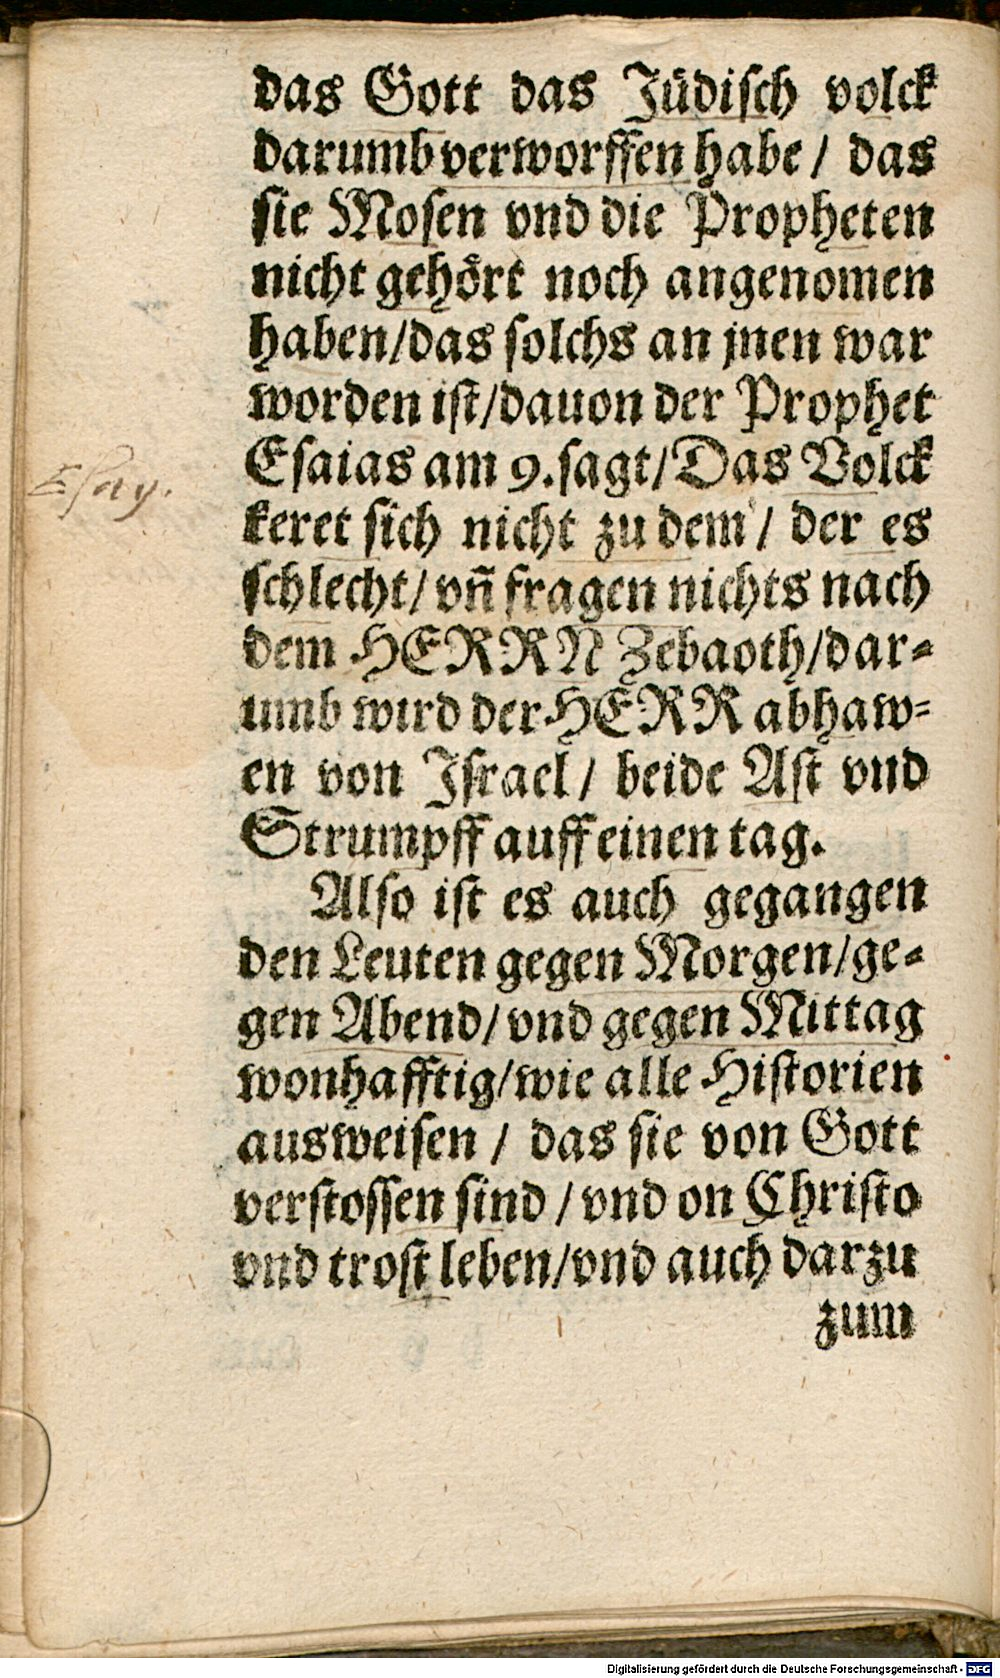 das Gott das Jüdisch volck
darumb verworffen habe / das
sie Mosen vnd die Propheten
nicht gehört noch angenomen
haben/das solchs an jnen war
worden ist/dauon der Prophet
Esaias am 9.sagt/Das Volck
Esay.
keret sich nicht zu dem / der es
schlecht/ vn̄ fragen nichts nach
dem HERRN Zebaoth/dar⸗
umb wird der HERR abhaw⸗
en von Israel/ beide Ast vnd
Strumpff auff einen tag.
Also ist es auch gegangen
den Leuten gegen Morgen/ge⸗
gen Abend/vnd gegen Mittag
wonhafftig/wie alle Historien
ausweisen / das sie von Gott
verstossen sind / vnd on Christo
vnd trost leben/vnd auch darzu
zum
Digitalisierung gefördert durch die Deutsche Forschungsgemeinschaft - DFG